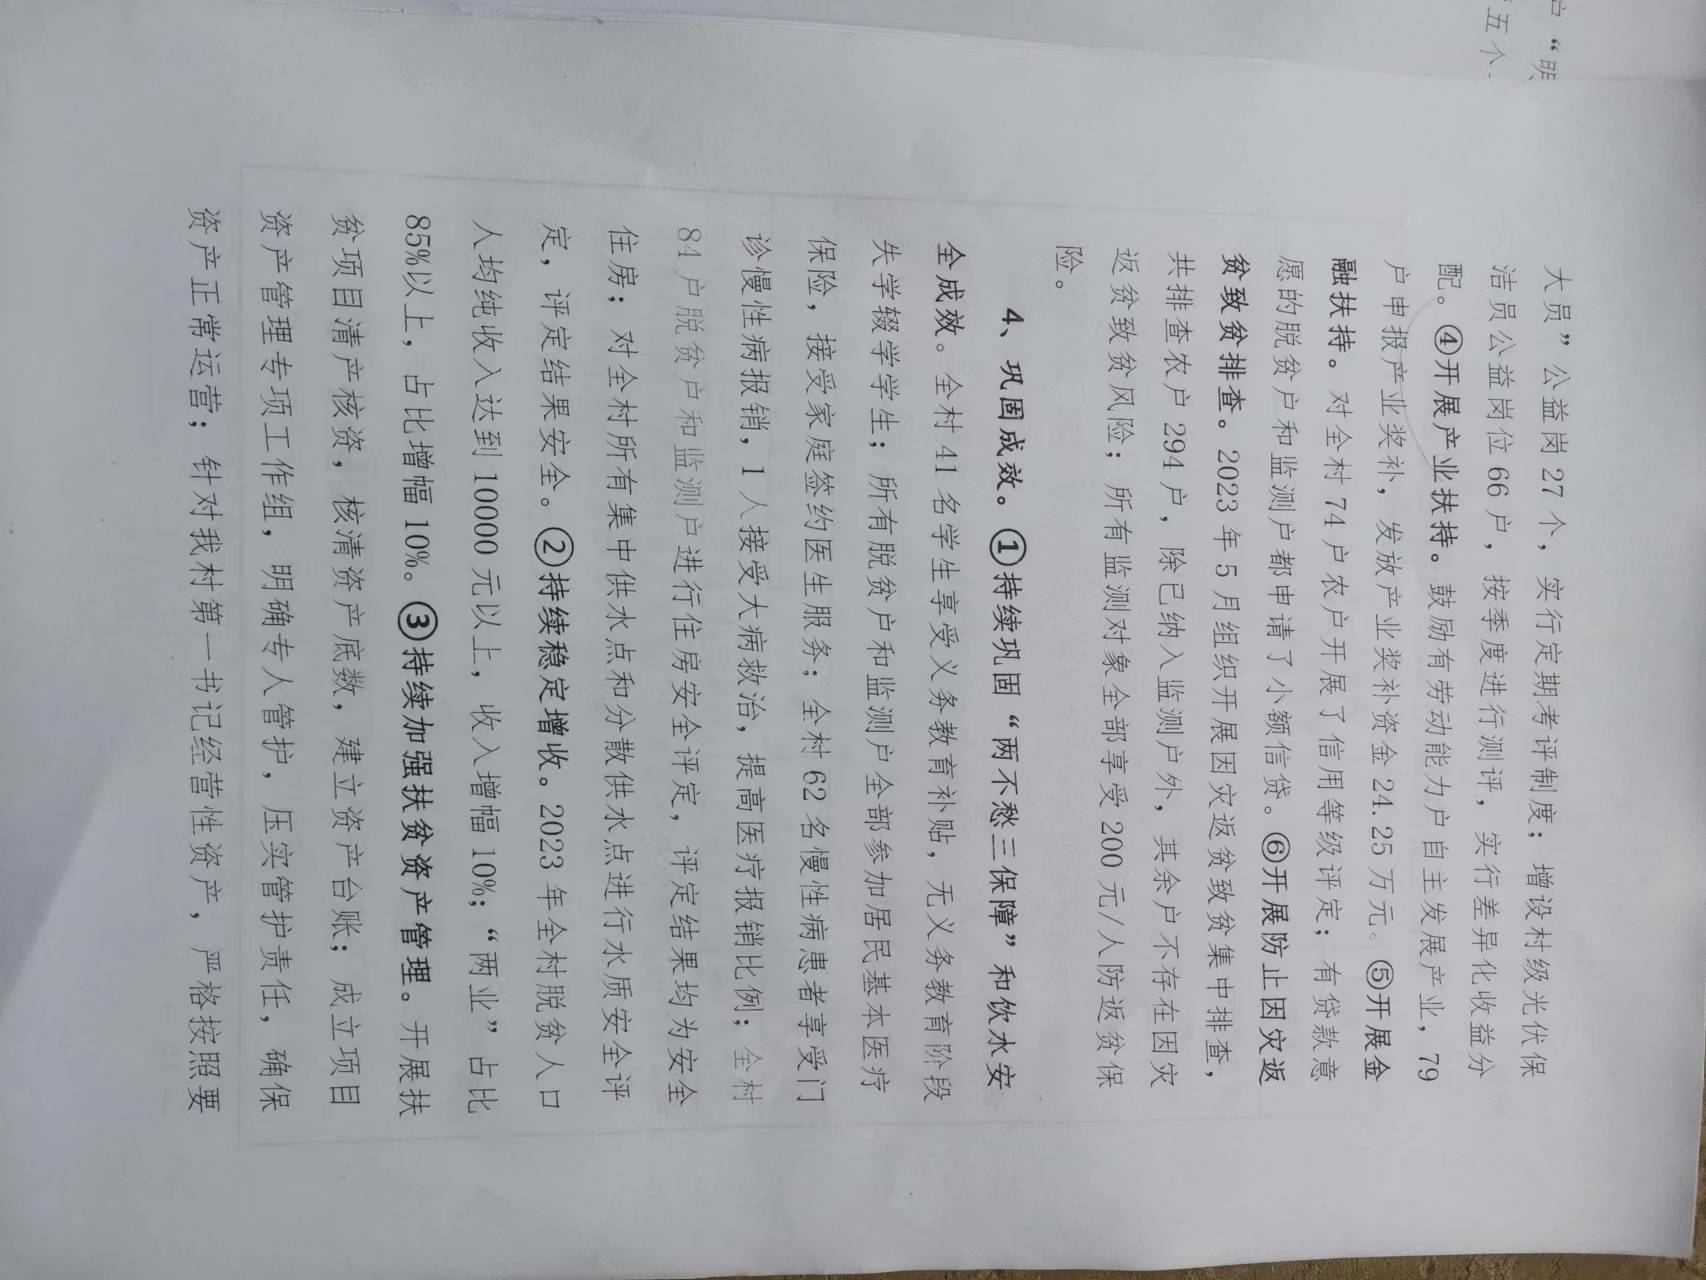 户“明
五个
大员”公益岗 27 个，实行定期考评制度；增设村级光伏保
洁员公益岗位 66 户，按季度进行测评，实行差异化收益分
配。④开展产业扶持。鼓励有劳动能力户自主发展产业，79
户申报产业奖补，发放产业奖补资金 24.25 万元。⑤开展金
融扶持。对全村 74 户农户开展了信用等级评定；有贷款意
愿的脱贫户和监测户都申请了小额信贷。⑥开展防止因灾返
贫致贫排查。2023 年 5 月组织开展因灾返贫致贫集中排查，
共排查农户 294 户，除已纳入监测户外，其余户不存在因灾
返贫致贫风险；所有监测对象全部享受 200 元/人防返贫保
险。
4、巩固成效。①持续巩固“两不愁三保障”和饮水安
全成效。全村 41 名学生享受义务教育补贴，无义务教育阶段
失学辍学学生；所有脱贫户和监测户全部参加居民基本医疗
保险，接受家庭签约医生服务；全村 62 名慢性病患者享受门
诊慢性病报销，1 人接受大病救治，提高医疗报销比例；全村
84 户脱贫户和监测户进行住房安全评定，评定结果均为安全
住房；对全村所有集中供水点和分散供水点进行水质安全评
定，评定结果安全。②持续稳定增收。2023 年全村脱贫人口
人均纯收入达到 10000 元以上，收入增幅 10%；“两业”占比
85%以上，占比增幅 10%。③持续加强扶贫资产管理。开展扶
贫项目清产核资，核清资产底数，建立资产台账；成立项目
资产管理专项工作组，明确专人管护，压实管护责任，确保
资产正常运营；针对我村第一书记经营性资产，严格按照要